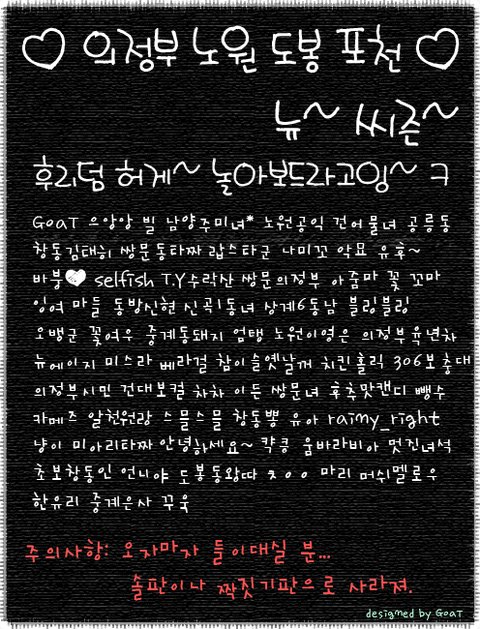 ♡ 의정부 노원 도봉 포천 ♡
뉴~ 씨즌~
후리덤 허게~ 놀아보드라고잉~ ㅋ
GoaT 으앙앙 빌 남양주미녀* 노원공익 건어물녀 공릉동
창동김태희 쌍문동타짜 랍스타군 나미꼬 악묘 유후~
바붕♥ selfish T.Y수락산 쌍문의정부 아줌마 꽃 꼬마
잉여 마들 동방신현 신곡1동녀 상계6동남 블링블링
오뱅군 꽃여우 중계동돼지 엄탱 노원이영은 의정부유년차
뉴에이지 미스라 베라걸 참이슬옛날꺼 치킨홀릭 306보충대
의정부시민 건대보컬 차차 이든 쌍문녀 후추맛캔디 뺑수
카메즈 알천원랑 스믈스믈 창동뿅 유아 rainy_right
냥이 미아리타짜 안녕하세요~ 캭콩 움바라비아 멋진녀석
초보창동인 언니야 도봉동왕따 ㅊㅇㅇ 마리 머쉬멜로우
한유리 중계은사 꾸욱
주의사항: 오자마자 들이대실 분...
솔판이나 짝짓기판으로 사라져.
designed by GoaT